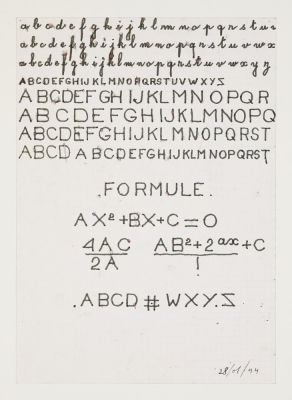 a b c d e f g h i j k l m n o p q r s t u
a b c d e f g h i j k l m n o p q r s t u v w x
a b c d e f g h i j k l m n o p q r s t u v w x y z
ABCDEFGHIJKLMNOPQRSTUVWXYS
ABCDEFGHIJKLMNOPQR
ABCDEFGHIJKLMNOPQ
ABCDEFGHIJKLMNOPQRST
ABCD ABCDEFGHIJKLMNOPQRST
.FORMULE.
AX²+BX+C=O
4AC AB²+2ᵃˣ+C
2A !
.ABCD # WXY.S